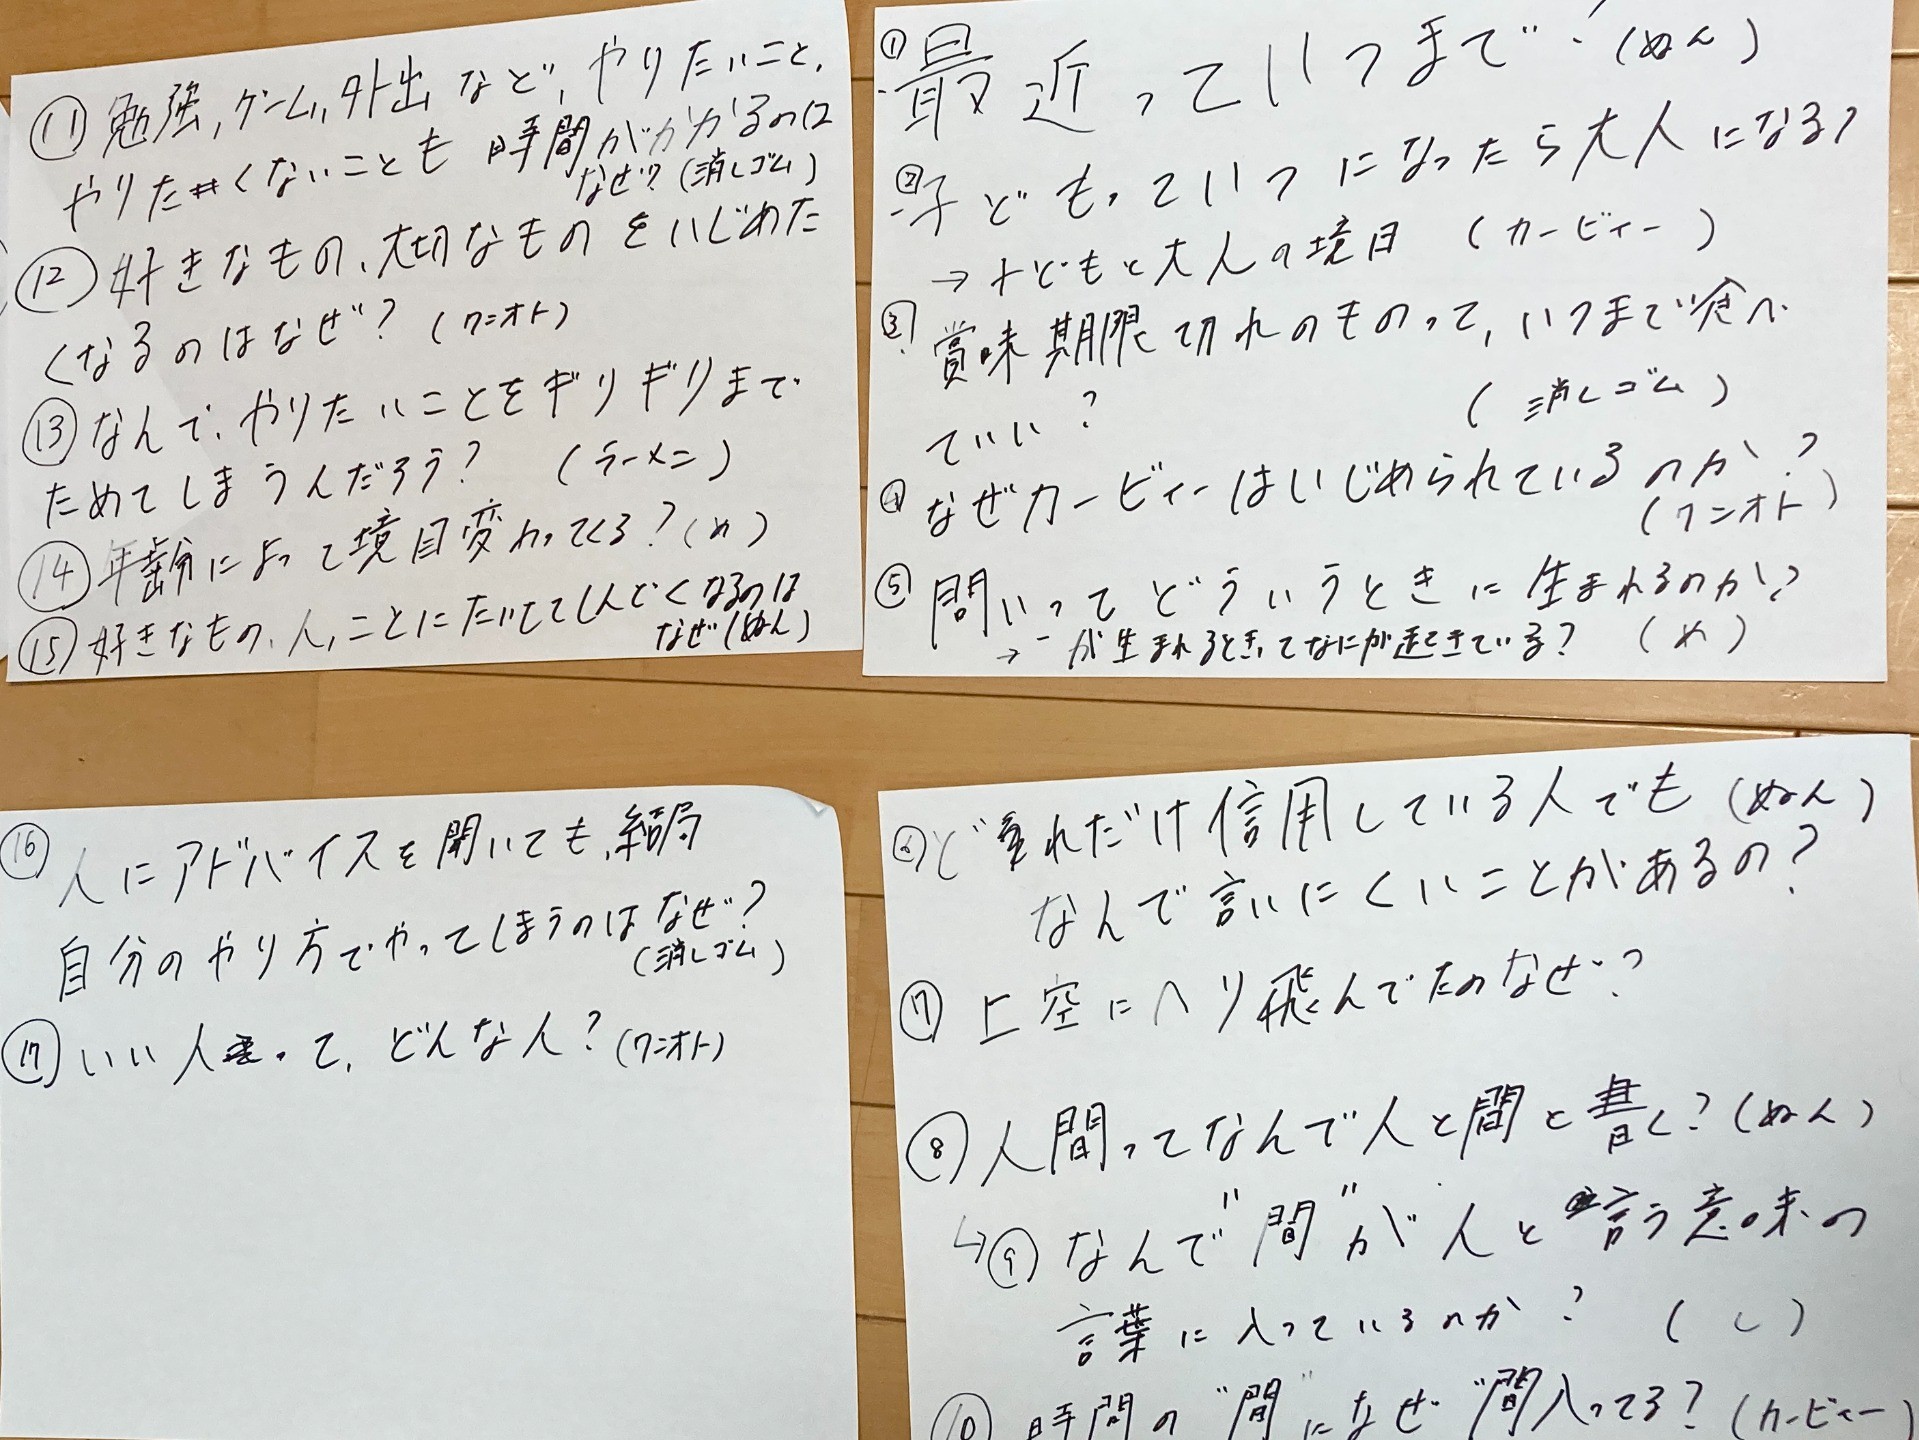 ① 最近っていつまで？(ぬん)
② 子どもっていつになったら大人になる？
→子どもと大人の境目 (カービィー)
③ 賞味期限切れのものって、いつまで食べ
ていい？ (消しゴム)
④ なぜカービィーはいじめられているのか？
(ワニオト)
⑤ 問いってどういうときに生まれるのか？
→〃が生まれるときってなにが起きている？ (め)
⑥ どれだけ信用している人でも (ぬん)
なんで言いにくいことがあるの？
⑦ 上空にヘリ飛んでたのなぜ？
⑧ 人間ってなんで人と間と書く？(ぬん)
↳⑨ なんで"間"が人と言う意味の
言葉に入っているのか？ (し)
⑩ 時間の"間"になぜ"間入ってる？(カービィー)
⑪ 勉強、ゲーム、外出など、やりたいこと、
やりたくないことも時間がかかるのは
なぜ？(消しゴム)
⑫ 好きなもの、大切なものをいじめた
くなるのはなぜ？ (ワニオト)
⑬ なんで、やりたいことをギリギリまで
ためてしまうんだろう？ (ラーメン)
⑭ 年齢によって境目変わってくる？(め)
⑮ 好きなもの、人、ことにたいしてしんどくなるのは
なぜ(ぬん)
⑯ 人にアドバイスを聞いても、結局
自分のやり方でやってしまうのはなぜ？
(消しゴム)
⑰ いい人って、どんな人？(ワニオト)